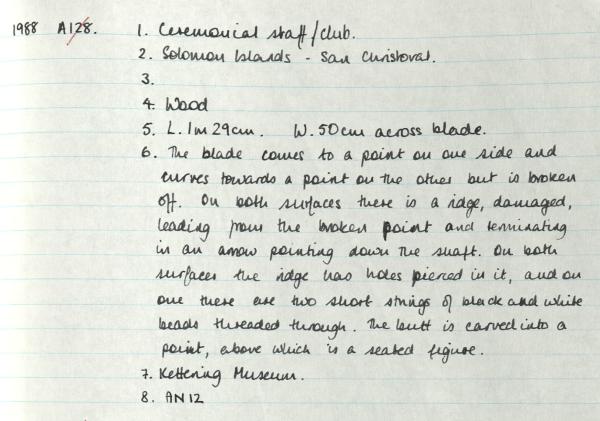 1988 A128. 1. Ceremonial staff/club.
2. Solomon Islands - San Christoval.
3.
4. Wood
5. L. 1m 29cm. W. 50cm across blade.
6. The blade comes to a point on one side and
curves towards a point on the other but is broken
off. On both surfaces there is a ridge, damaged,
leading from the broken point and terminating
in an arrow pointing down the shaft. On both
surfaces the ridge has holes pierced in it, and on
one there are two short strings of black and white
beads threaded through. The butt is carved into a
point, above which is a seated figure.
7. Kettering Museum.
8. AN12